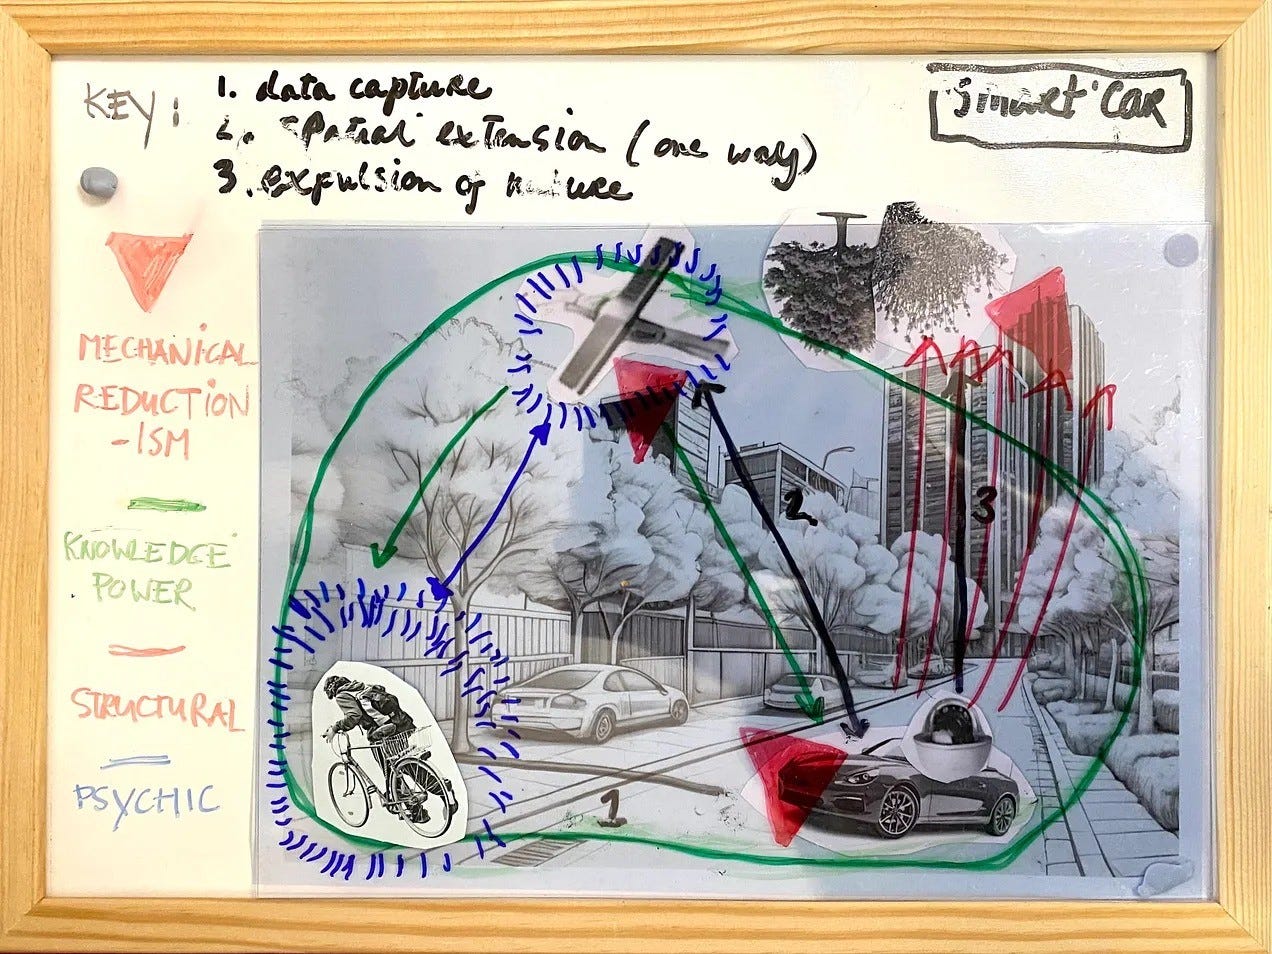 KEY:
1. data capture
2. spatial extension (one way)
3. expulsion of nature
'smart' car
MECHANICAL
REDUCTION
-ISM
KNOWLEDGE
POWER
STRUCTURAL
PSYCHIC
2.
3
1